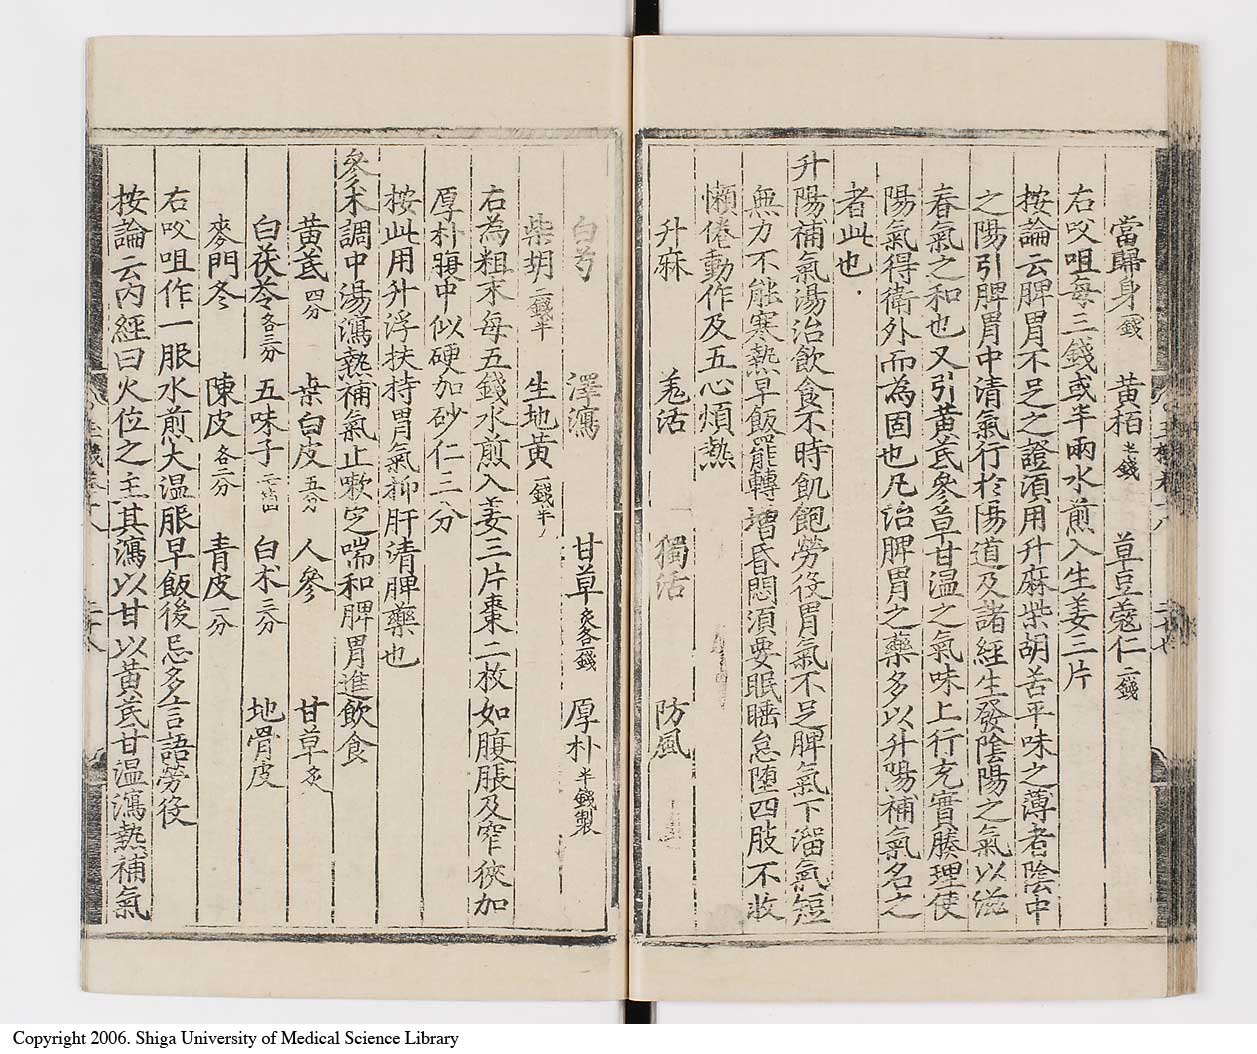 當歸身一錢 黃栢 草豆蔲仁二錢
右㕮咀每三錢或半兩水煎入生姜三片
按論云脾胃不足之證湏用升麻柴胡苦平味之薄者陰中
之陽引脾胃中清氣行於陽道及諸經生發陰陽之氣以滋
春氣之和也又引黃茋參草甘温之氣味上行充實腠理使
陽氣得衛外而為固也凡治脾胃之藥多以升陽補氣名之
者此也
升陽補氣湯治飮食不時飢飽勞役胃氣不足脾氣下溜氣短
無力不能寒熱早飯罷轉增昏悶湏要眠睡怠墮四肢不收
懶倦動作及五心煩熱
升麻 羗活 獨活 防風
白芍 澤瀉 甘草炙各一錢 厚朴半錢製
柴胡二錢半 生地黃一錢半
右為粗末每五錢水煎入姜三片棗二枚如腹脹及窄狹加
厚朴腹中似硬加砂仁三分
按此用升浮扶持胃氣抑肝清脾藥也
參朮調中湯瀉熱補氣止嗽定喘和脾胃進飮食
黃茋四分 桑白皮五分 人參 甘草炙
白茯苓各三分 五味子 白朮三分 地骨皮
麥門冬 陳皮各二分 青皮一分
右㕮咀作一服水煎大温服早飯後忌多言語勞役
按論云內經曰火位之主其瀉以甘以黃茋甘温瀉熱補氣
Copyright 2006. Shiga University of Medical Science Library